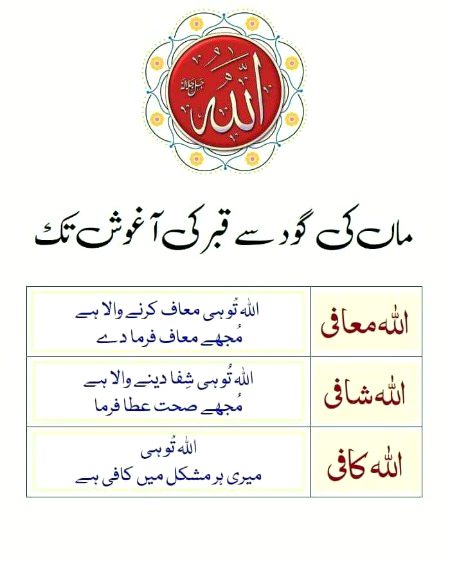 الله جل جلاله
ماں کی گود سے قبر کی آغوش تک
الله معافی
الله تُو ہی معاف کرنے والا ہے
مُجھے معاف فرما دے
الله شافی
الله تُو ہی شِفا دینے والا ہے
مُجھے صحت عطا فرما
الله کافی
الله تُو ہی
میری ہر مشکل میں کافی ہے